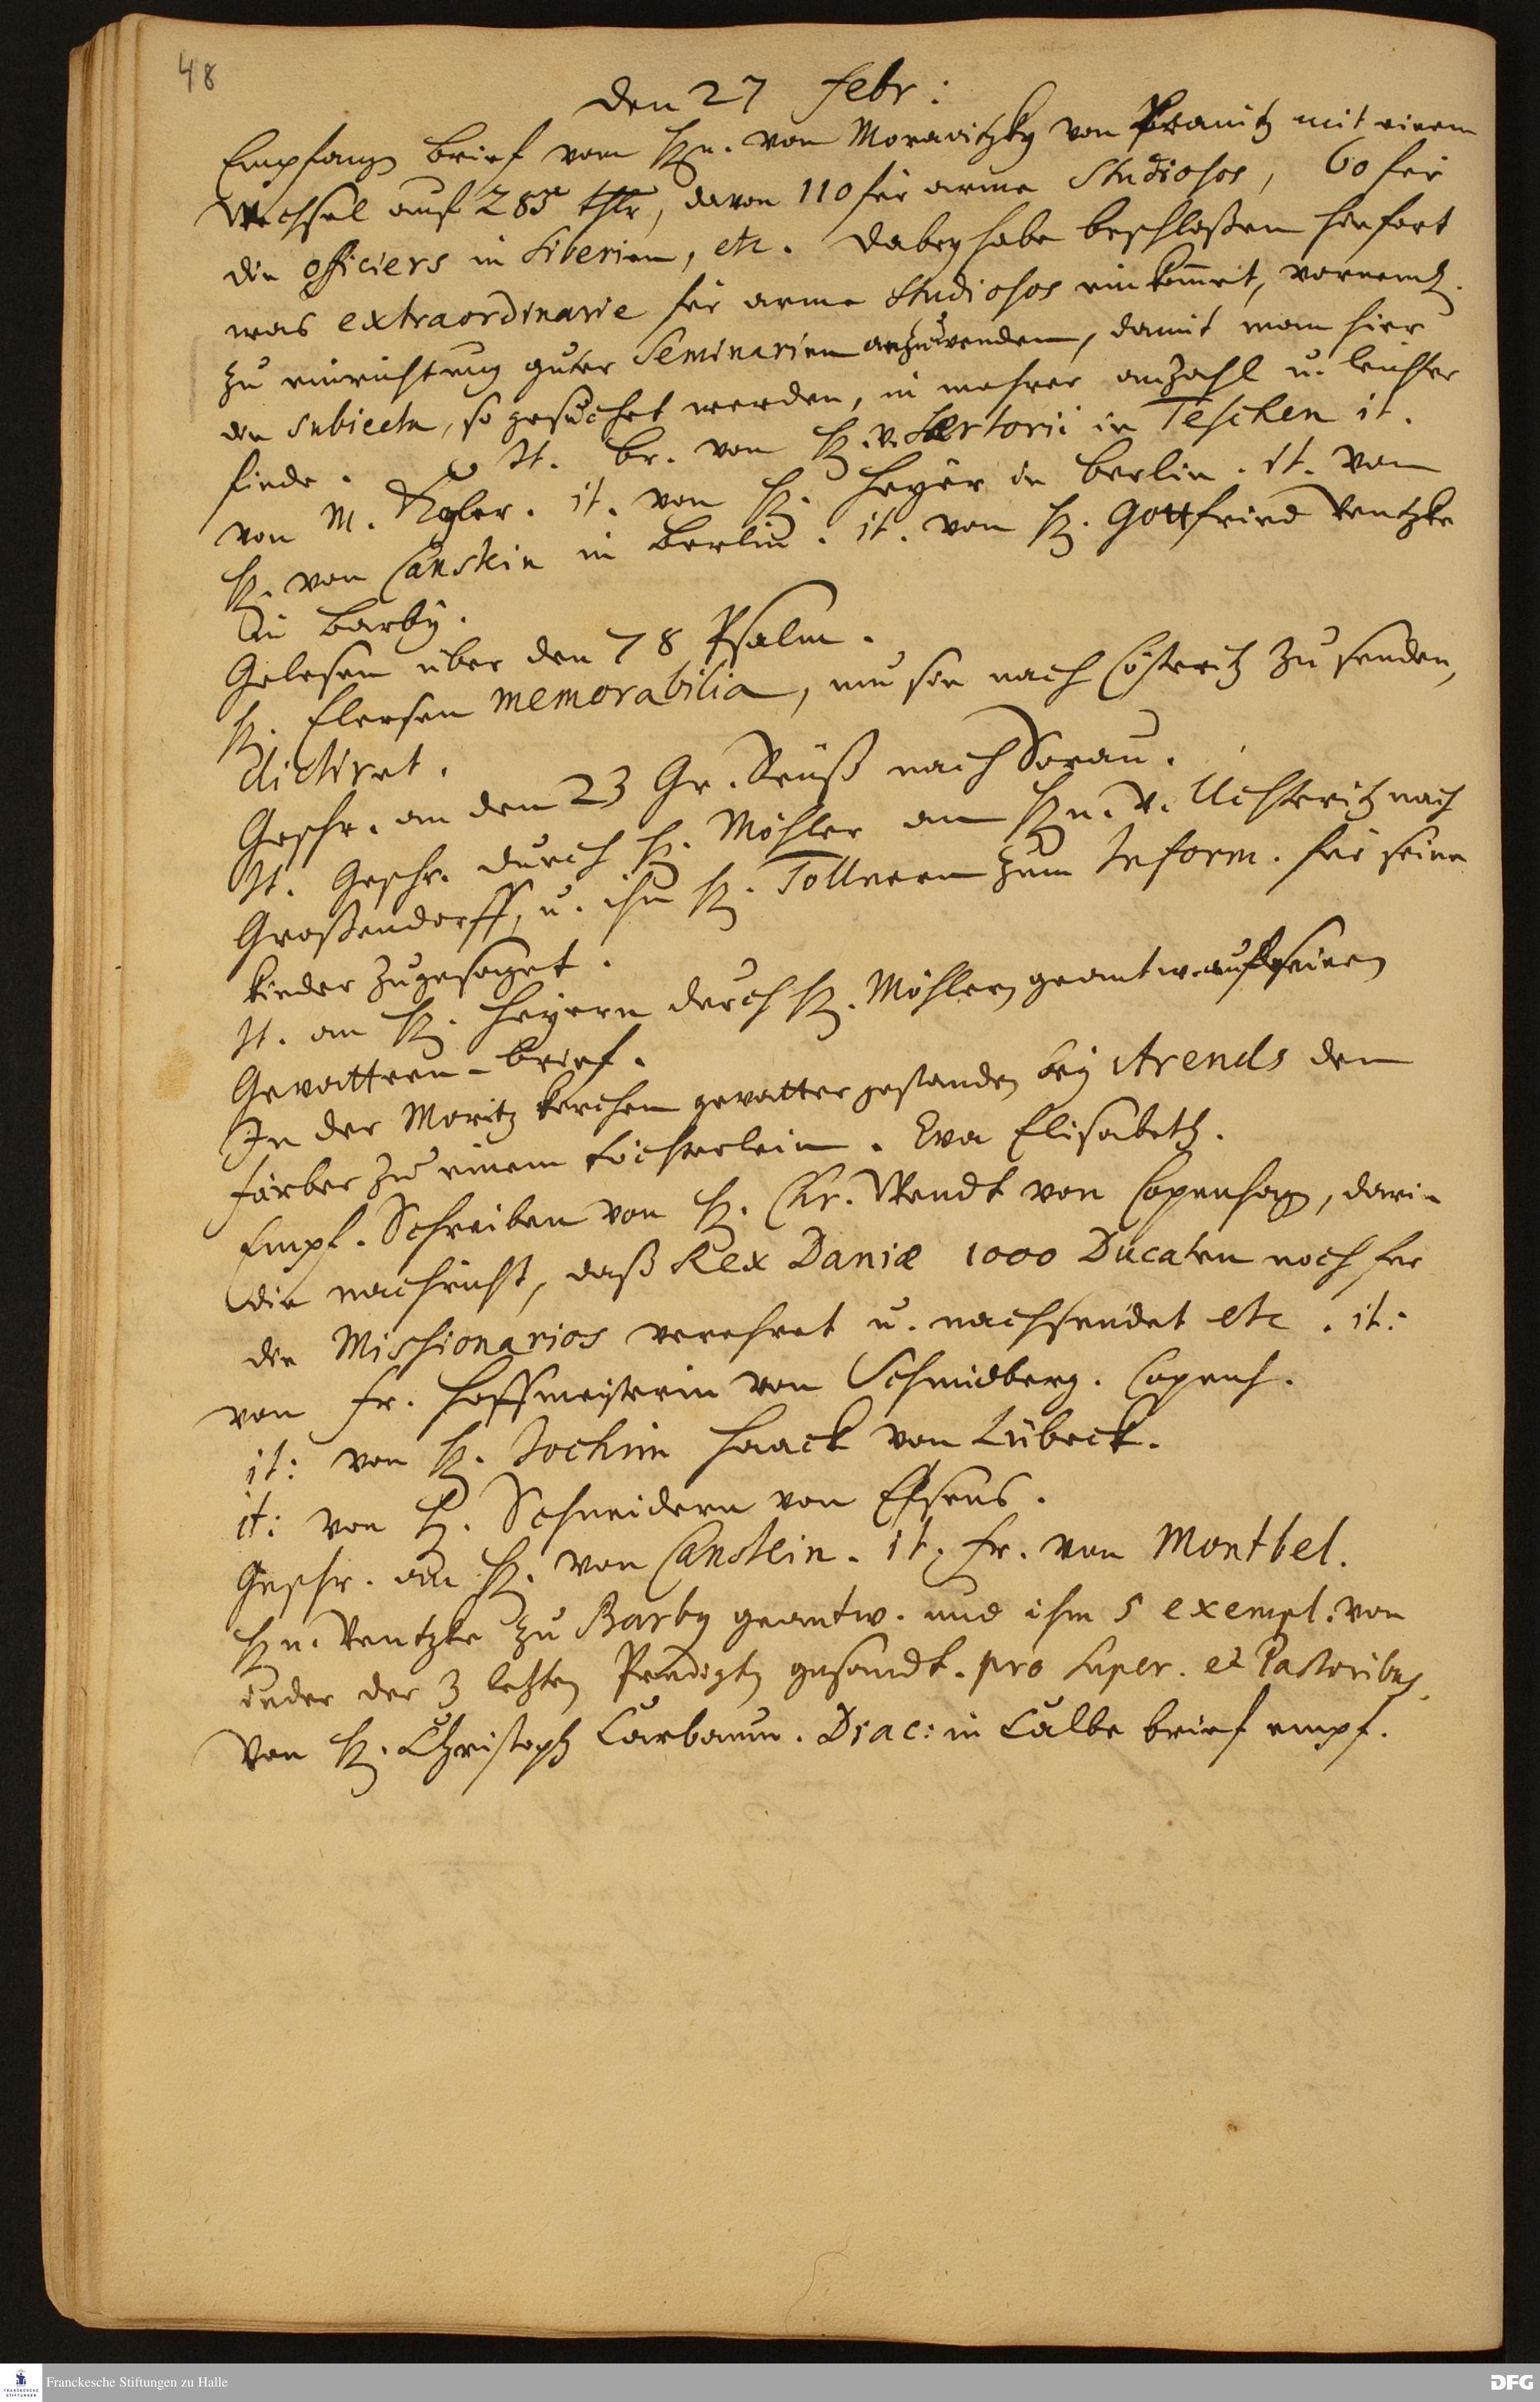 48
den 27 Febr:
Empfange brief vom Hn. von Morawitzky von mit einem
Wechsel auf 285 thlr, davon 110 für arme Studiosos, 60 für
die officiers in Siberien, etc. Dabey habe beschloßen hinfort
was extraordinarie für arme Studiosos einkom̄et, vorneml.
zu einrichtung guter Seminarien anzuwenden, damit man hier
die subiecta, so gesuchet werden, in mehrer anzahl u. leichter
finde. It. br. von H. Sartorii in Teschen it.
von M. it. von H. Heyer in Berlin. it. vom
H. von Canstein in Berlin. it. von H. Gottfried Ventzke
in Barby.
Gelesen über den 78 Psalm.
H. Elersen memorabilia, um sie nach Cöstritz zu senden,
dictiret.
Geschr. an den 23 Gr. Reuß nach Sorau.
It. Geschr. durch H. Möhler an Hn. v. Uchteritz nach
Großendorff, u. ihm H. Tollnern zum Inform. für seine
kinder zugesaget.
It. an H. Heyern durch H. Möhlern geantw. auf seinen
Gevattern-brief.
In der Moritz kirchen gevatter gestanden bey Arends dem
färber zu einem töchterlein. Eva Elisabeth.
Empf. Schreiben von H. Chr. Wendt von Copenhag, darin
die nachricht, daß Rex Daniæ 1000 Ducaten noch für
die Missionarios verehret u. nachsendet etc. it:
von Fr. Hoffmeisterin von Schmidberg. Copenh.
it: von H. Jochim Haack von Lübeck.
it: von H. Schneidern von Esens.
Geschr. an H. von Canstein. it. Fr. von Montbel.
Hn. Ventzke zu Barby geantw. und ihm 5 exempl. von
ieder der 3 letzten Predigten gesandt. pro Super. et Pastoribus.
Von H. Christoph Diac: in Calbe brief empf.
Franckesche Stiftungen zu Halle
DFG